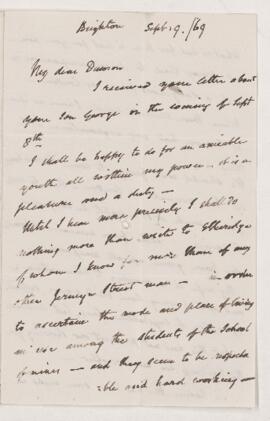 Brighton Sept. 9./69
My dear Dawson
I received your letter about
your son George on the evening of Sept
8th
I shall be happy to do for an amiable
youth all within my power - it is a
pleasure and a duty -
Until I hear more precisely I shall do
nothing more than write to Etheridge
of whom I know far more than of any
other Jermyn Street man - in order
to ascertain the mode and place of living
in use among the students of the School
of mines - and they seem to be respecta
=ble and hard working -